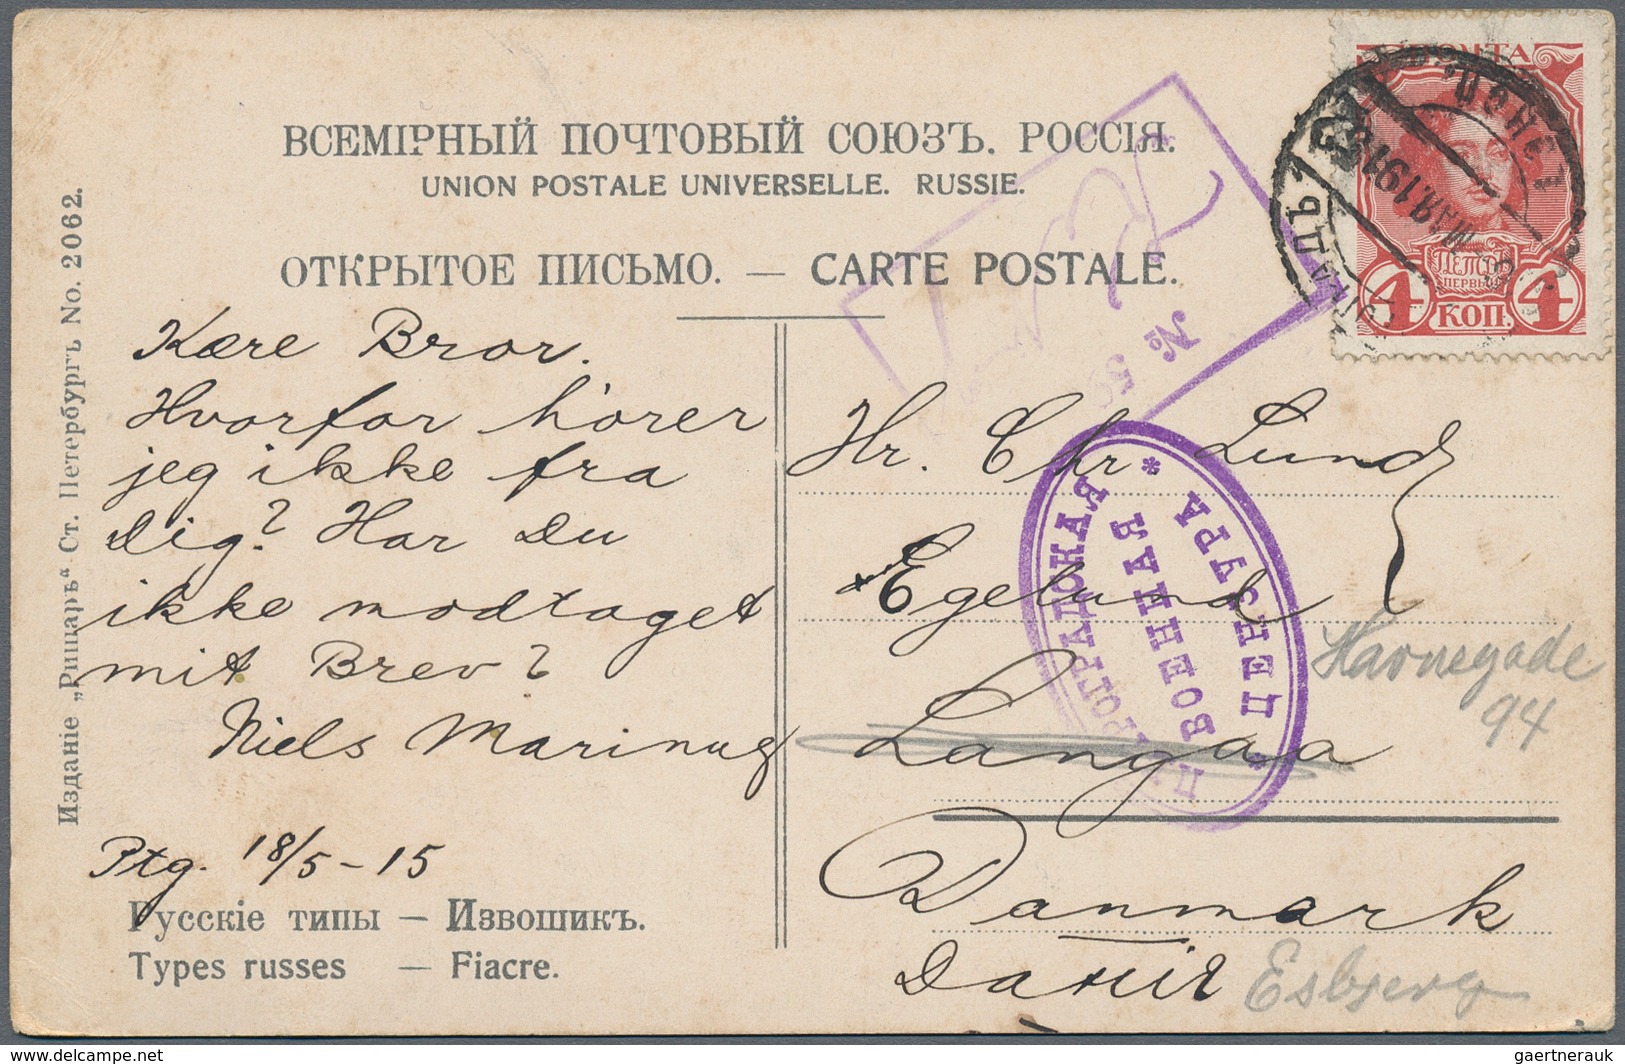 ВСЕМІРНЫЙ ПОЧТОВЫЙ СОЮЗЪ. РОССІЯ.
UNION POSTALE UNIVERSELLE. RUSSIE.
ОТКРЫТОЕ ПИСЬМО. — CARTE POSTALE.
Изданіе „Рицаръ“ Ст. Петербургъ No. 2062.
Kære Bror.
Hvorfor hører
jeg ikke fra
Dig? Har Du
ikke modtaget
mit Brev?
Niels Marinus
Ptg. 18/5-15
Русскіе типы — Извошикъ.
Types russes — Fiacre.
Hr. Chr Lund
Egelund
Langaa
Danmark
Данія
Havnegade
94
Esbjerg
ПОЧТА
ПЕТРЪ
ПЕРВЫЙ
4 КОП. 4
№
ПЕТРОГРАДСКАЯ
ВОЕННАЯ
* ЦЕНЗУРА *
gaertnerauk